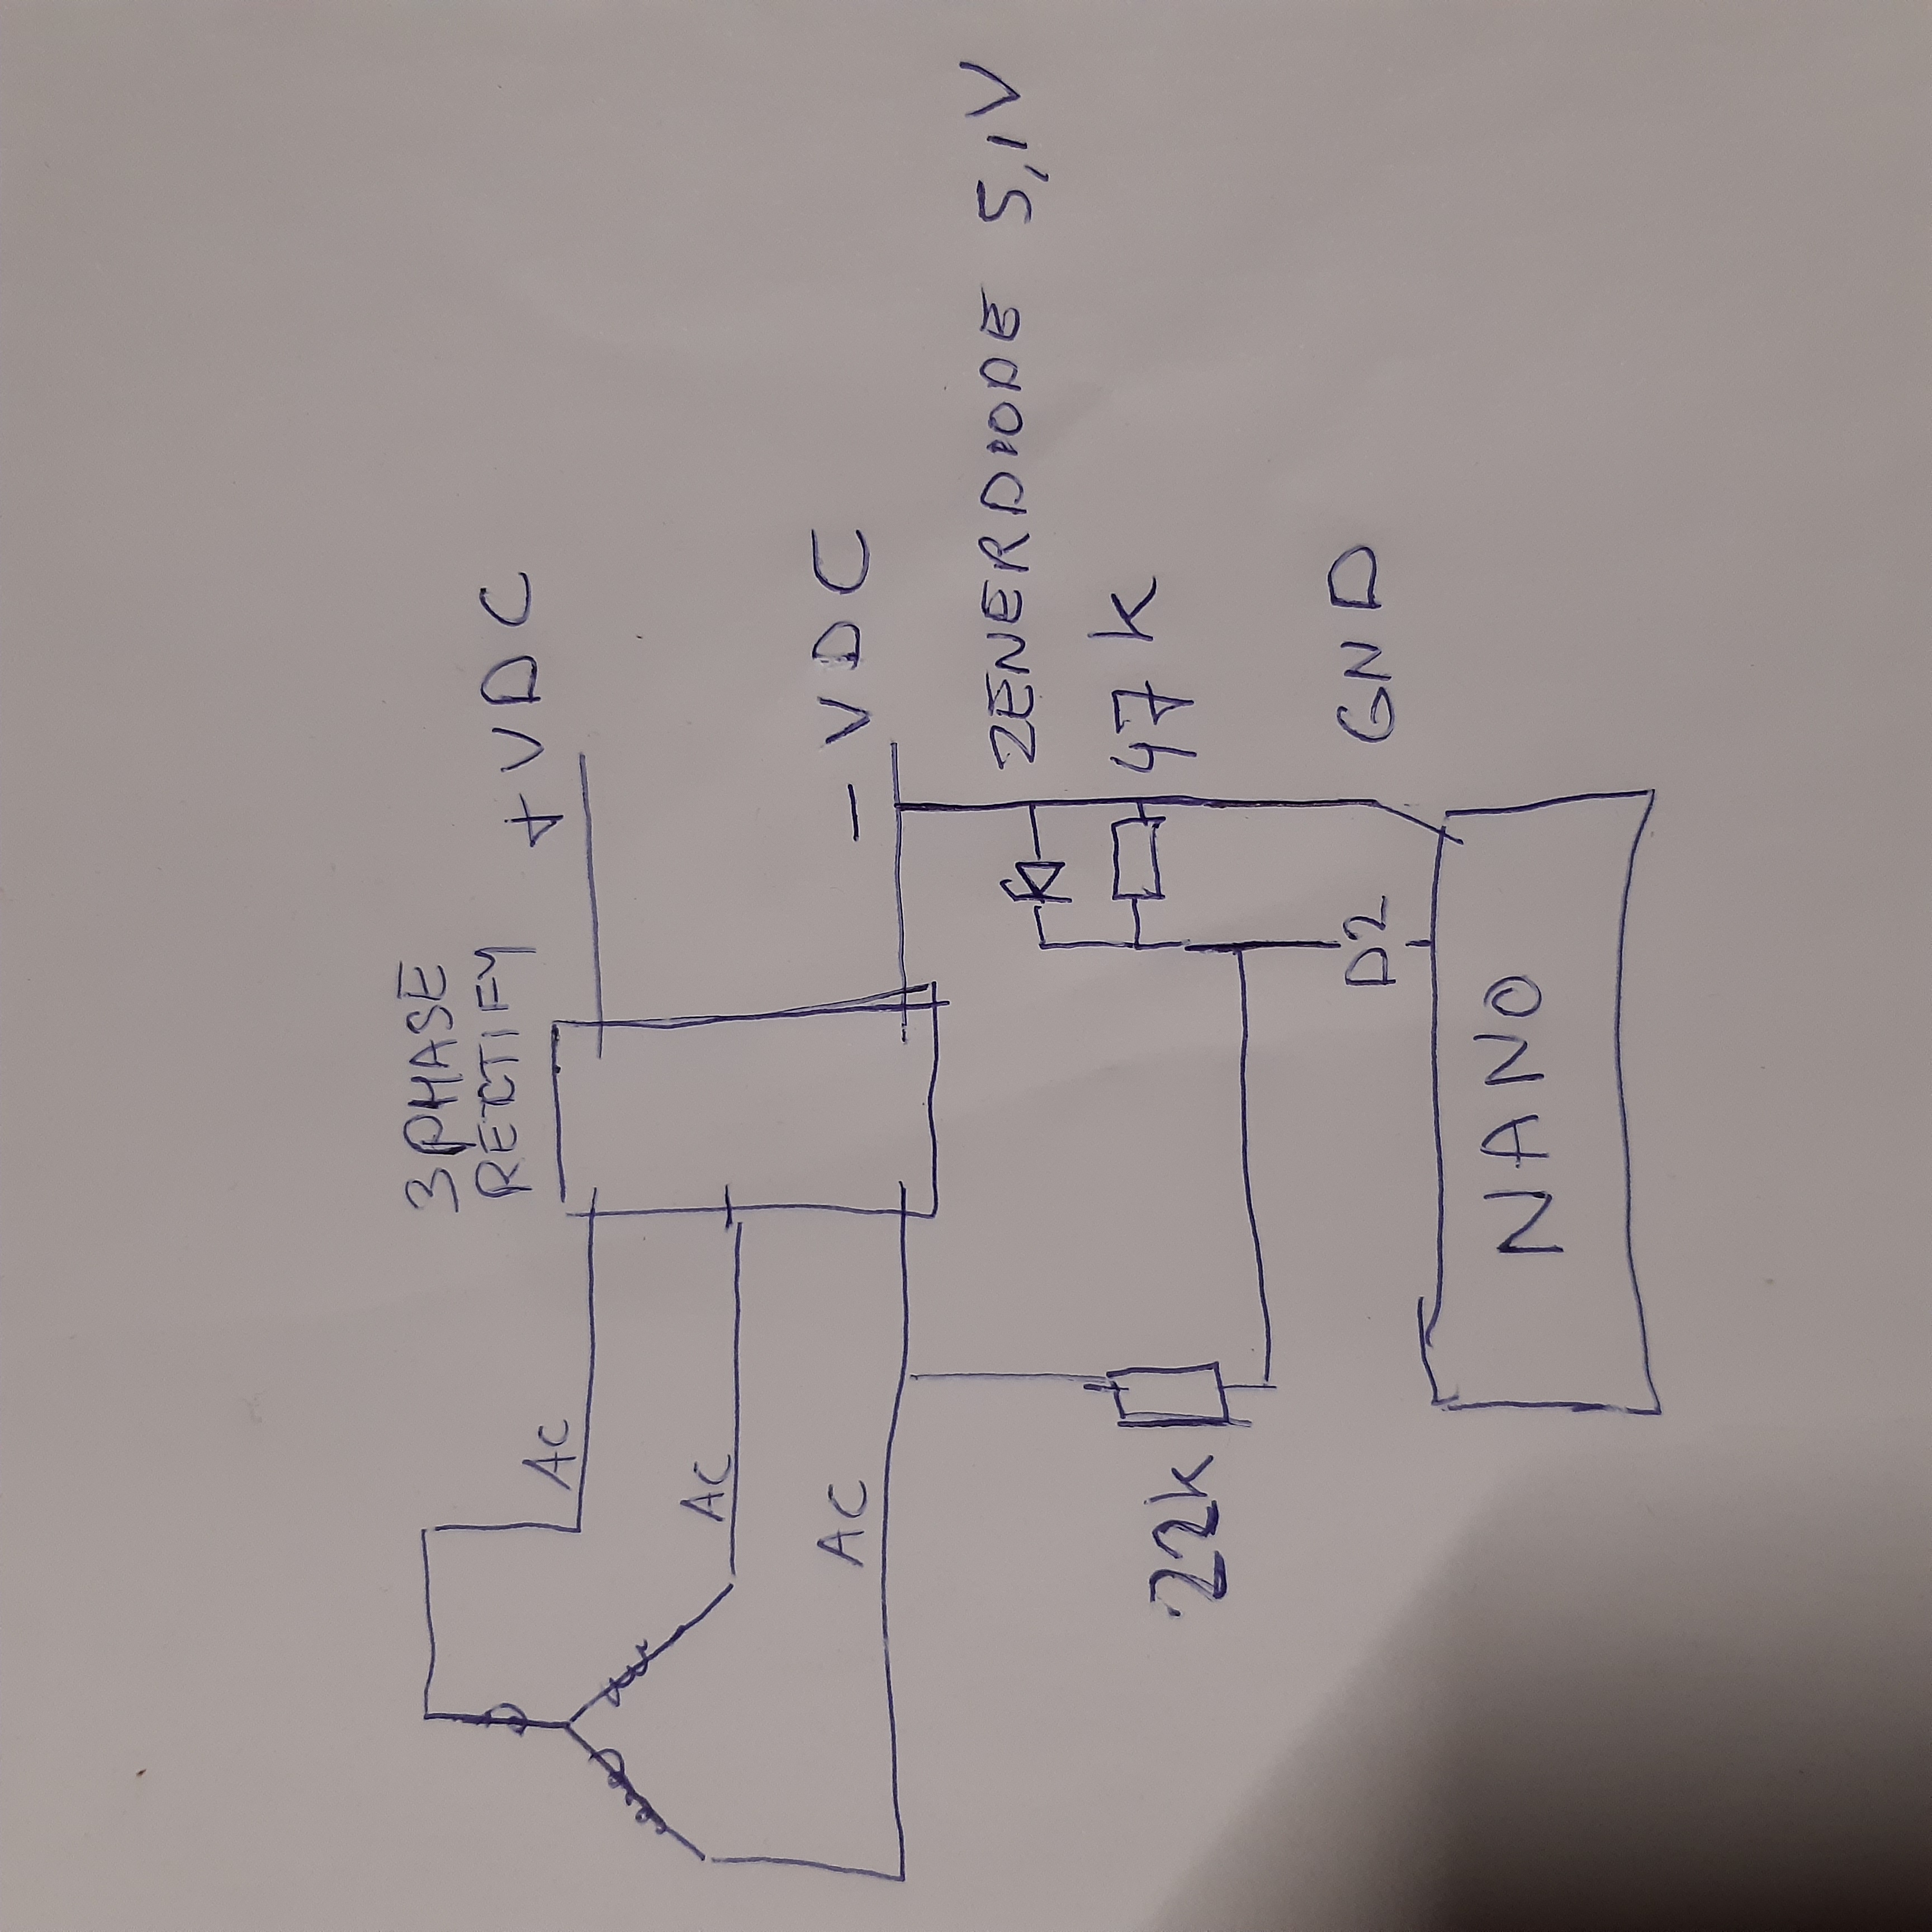 3 PHASE
RECTIFY
+ VDC
AC
AC
AC
- VDC
ZENERDIODE 5,1V
47 k
22k
D2
GND
NANO